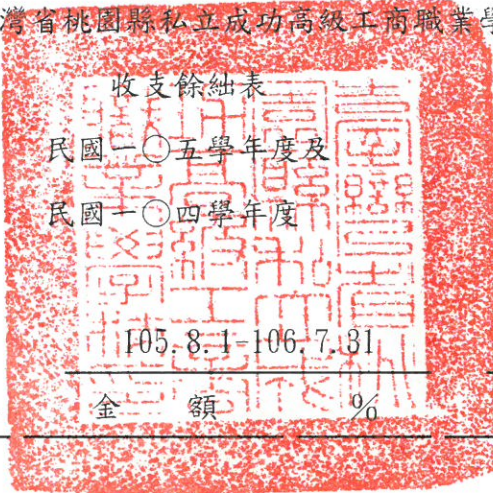 灣省桃園縣私立成功高級工商職業學
收支餘絀表
民國一○五學年度及
民國一○四學年度
105.8.1-106.7.31
金 額 %